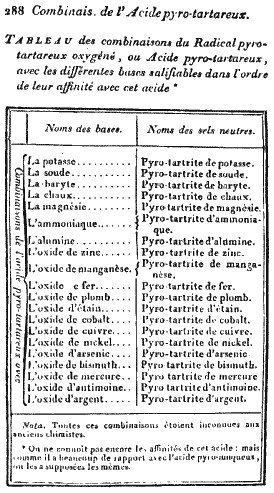 288 Combinais. de l'Acide pyro-tartareux.
TABLEAU des combinaisons du Radical pyro-
tartareux oxygéné, ou Acide pyro-tartareux,
avec les différentes bases salifiables dans l'ordre
de leur affinité avec cet acide *
Noms des bases. Noms des sels neutres.
Combinaisons de l'acide pyro-tartareux avec
La potasse.......... Pyro-tartrite de potasse.
La soude........... Pyro-tartrite de soude.
La baryte.......... Pyro-tartrite de baryte.
La chaux........... Pyro-tartrite de chaux.
La magnésie........ Pyro-tartrite de magnésie.
L'ammoniaque....... Pyro-tartrite d'ammonia-
que.
L'alumine.......... Pyro-tartrite d'alumine.
L'oxide de zinc.... Pyro-tartrite de zinc.
L'oxide de manganèse. Pyro-tartrite de manga-
nèse.
L'oxide e fer...... Pyro-tartrite de fer.
L'oxide de plomb... Pyro-tartrite de plomb.
L'oxide d'étain.... Pyro-tartrite d'étain.
L'oxide de cobalt.. Pyro-tartrite de cobalt.
L'oxide de cuivre.. Pyro-tartrite de cuivre.
L'oxide de nickel.. Pyro-tartrite de nickel.
L'oxide d'arsenic.. Pyro-tartrite d'arsenic
L'oxide de bismuth. Pyro-tartrite de bismuth.
L'oxide de mercure.. Pyro-tartrite de mercure
L'oxide d'antimoine. Pyro-tartrite d'antimoine.
L'oxide d'argent... Pyro-tartrite d'argent.
Nota. Toutes ces combinaisons étoient inconnues aux
anciens chimistes.
* On ne connoît pas encore les affinités de cet acide : mais
comme il a beaucoup de rapport avec l'acide pyro-muqueux,
on les a supposées les mêmes.